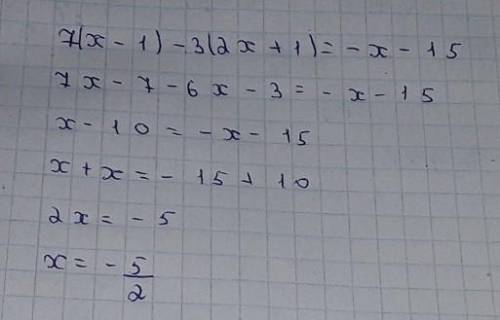 7(x - 1) - 3(2x + 1) = - x - 15
7x - 7 - 6x - 3 = - x - 15
x - 10 = - x - 15
x + x = - 15 + 10
2x = - 5
x = - 5/2